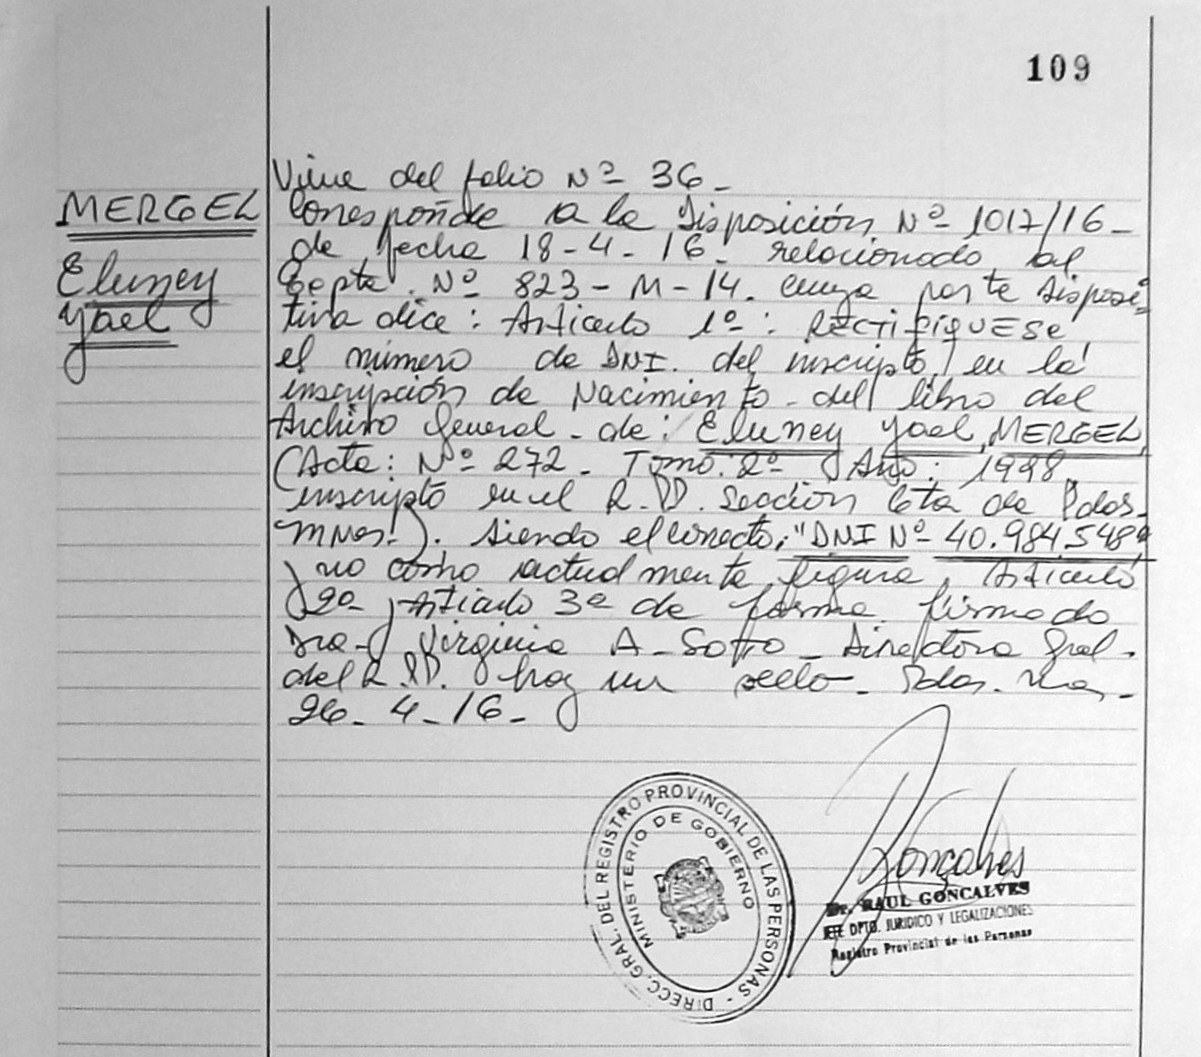 109
Viene del folio Nº 36-
MERGEL
Eluney
Yael
Corresponde a la Disposición Nº 1017/16-
de fecha 18-4-16- relacionado al
Expte. Nº 823-M-14. cuya parte disposi-
tiva dice: Artículo 1º: RECTIFIQUESE
el número de DNI. del inscripto, en la
inscripción de Nacimiento- del libro del
Archivo General- de: Eluney Yael MERGEL
(Acta: Nº 272- Tomo: 2º Año: 1998,
inscripto en el R.PP. Sección 6ta de Pdas-
Mnes-). siendo el correcto, "DNI Nº 40.984.548"
y no como actualmente figura, Artículo
2º y Artículo 3º de forma. firmado
Dra- Virginia A- Sotto- Directora Gral-
del R.PP. hay un sello- Pdas. Mes-
26-4-16-
DIRECC. GRAL. DEL REGISTRO PROVINCIAL DE LAS PERSONAS -
MINISTERIO DE GOBIERNO
Goncalves
Dr. RAUL GONCALVES
JEFE DPTO. JURIDICO Y LEGALIZACIONES
Registro Provincial de las Personas